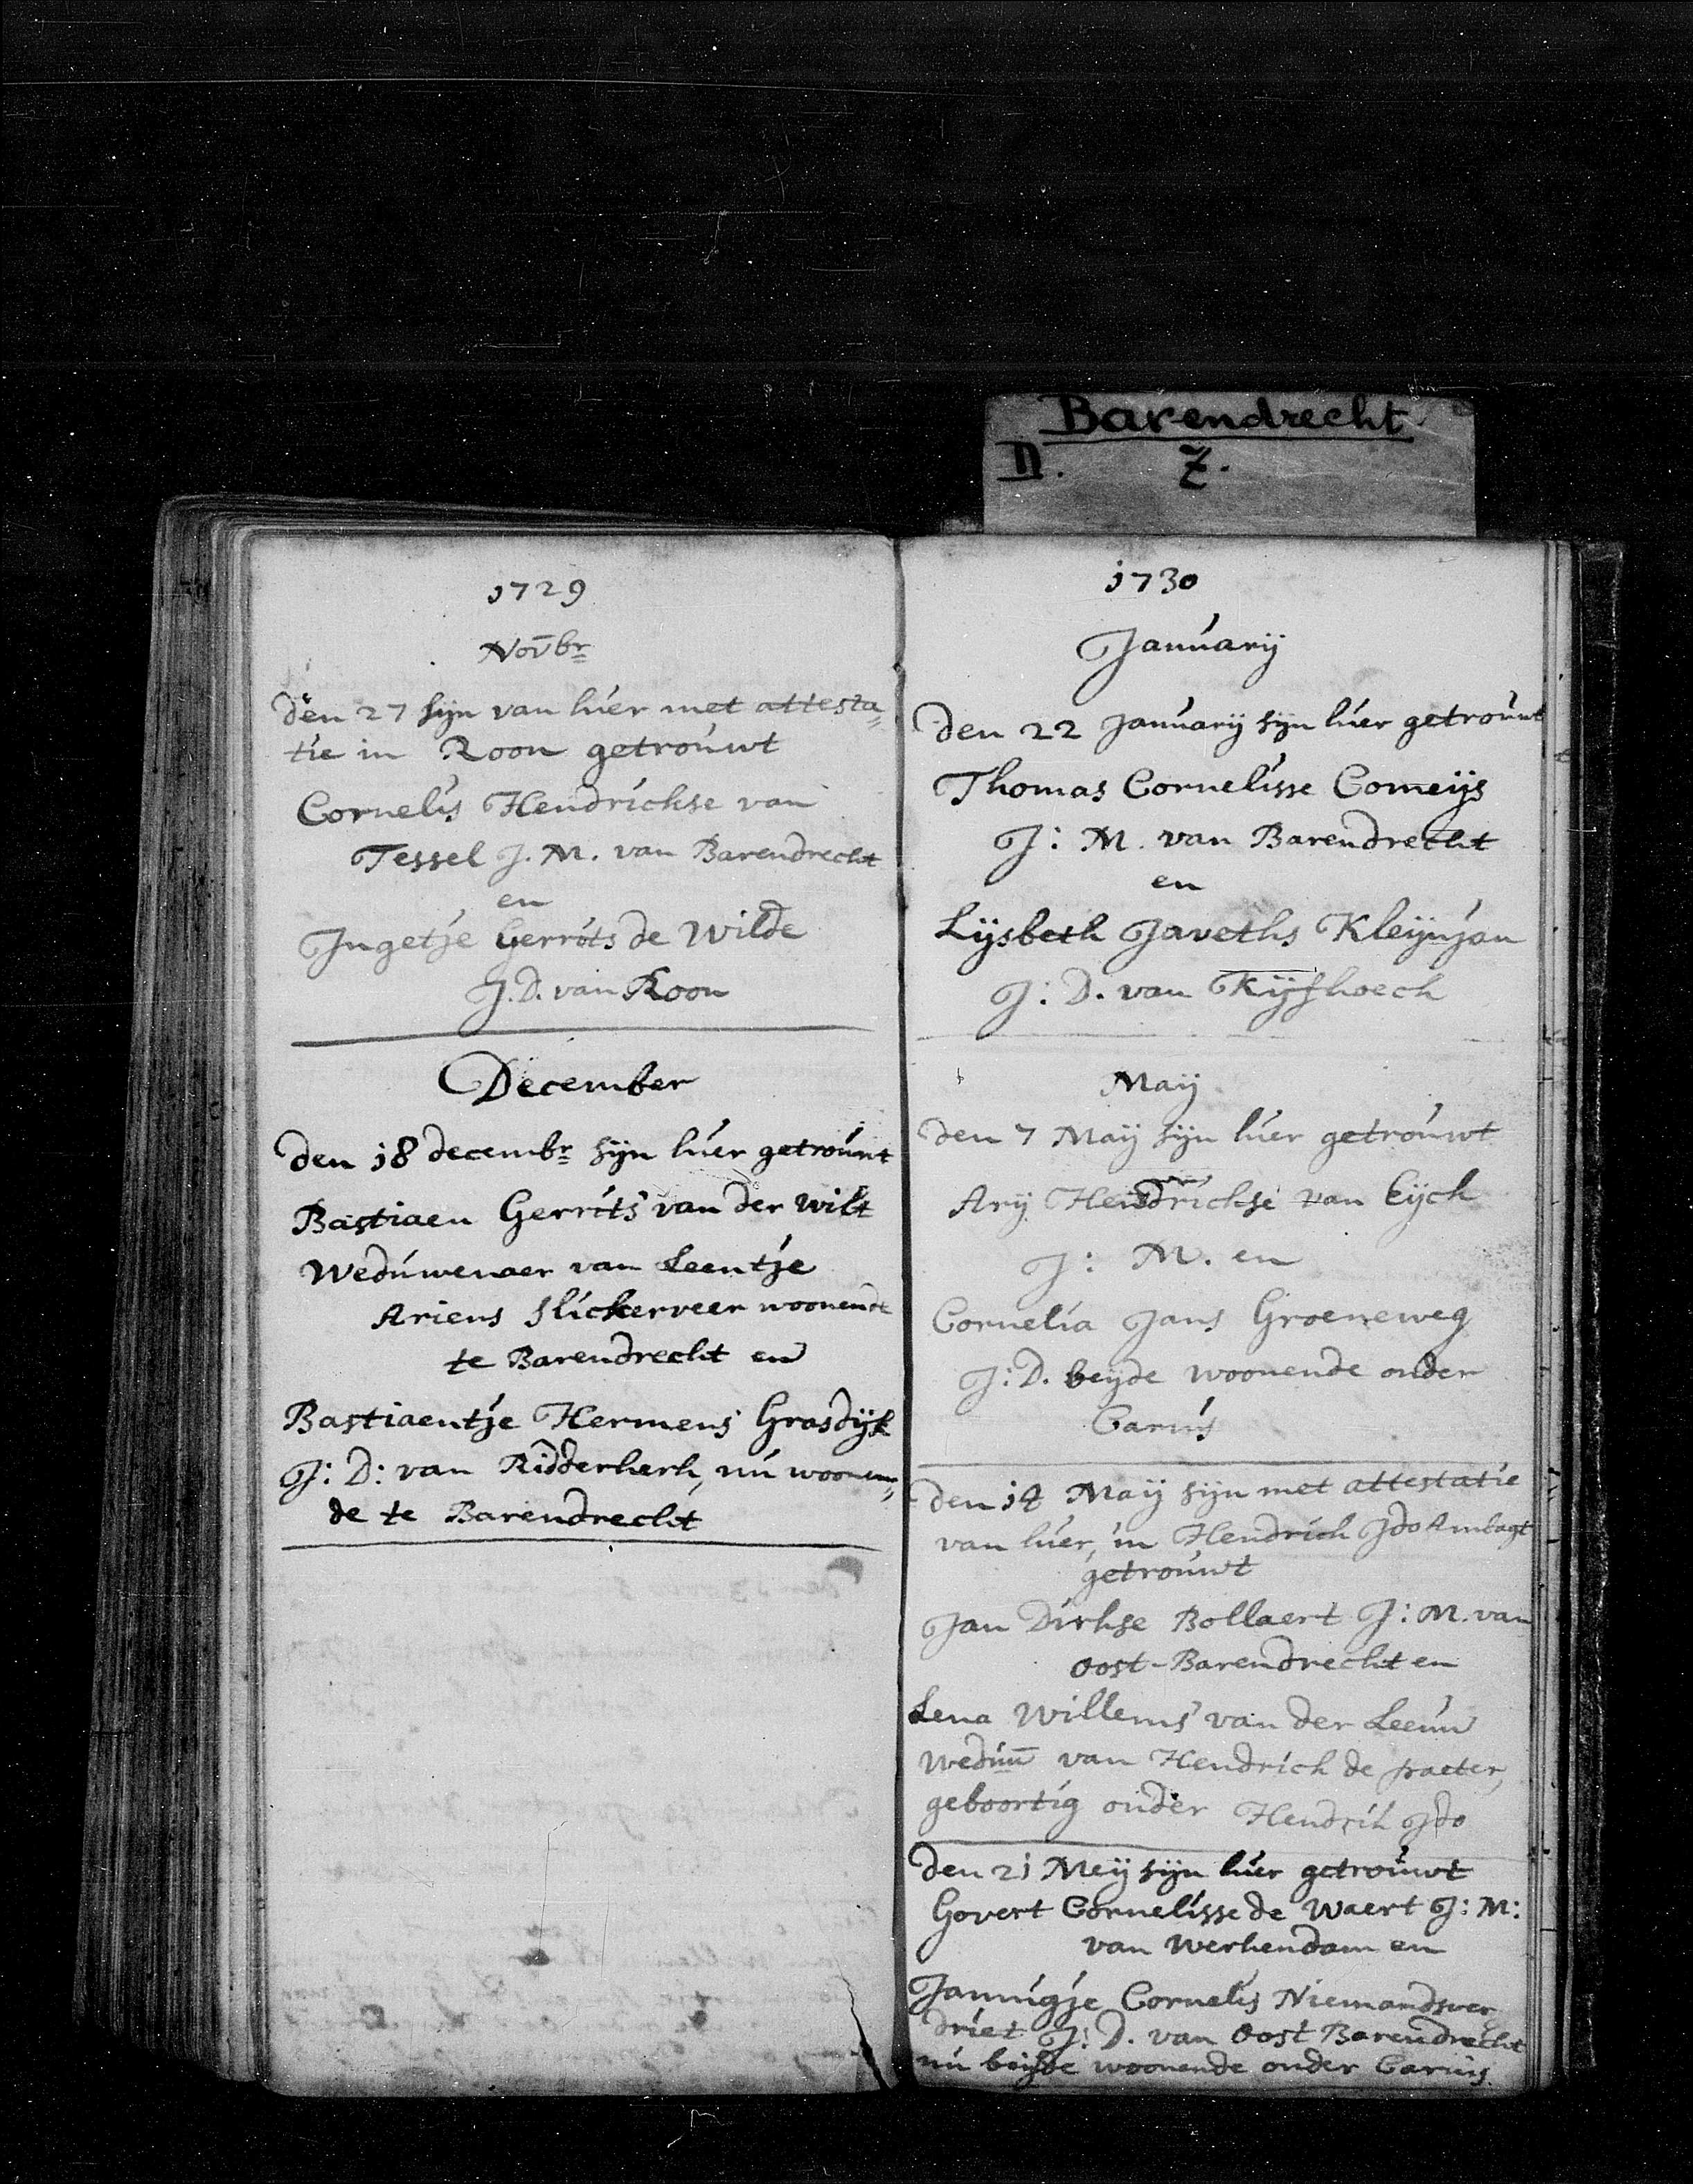 Barendrecht
D. 7.
1729
Nov̄br
den 27 sijn van hier met attesta=
tie in Roon getrouwt
Cornelis Hendrichse van
Tessel J. M. van Barendrecht
en
Ingetje Gerrits de Wilde
J. D. van Roon
December
den 18 decembr sijn hier getrouwt
Bastiaen Gerrits van der Wilt
Weduwenaer van Leentje
Ariens Slickerveer woonende
te Barendrecht en
Bastiaentje Hermens Grasdijk
J: D: van Ridderkerk, nu woonen=
de te Barendrecht
1730
Januarij
den 22 Januarij sijn hier getrouwt
Thomas Cornelisse Comeijs
J: M. van Barendrecht
en
Lijsbeth Javeths Kleijnjan
J: D. van Kijfhoeck
Maij
den 7 Maij sijn hier getrouwt
Arij Hendrichse van Eijck
J: M. en
Cornelia Jans Groeneweg
J: D. beijde woonende onder
Carnis
den 14 Maij sijn met attestatie
van hier, in Hendrick Ido Ambagt
getrouwt
Jan Dirkse Bollaert J: M. van
Oost-Barendrecht en
Lena Willems van der Leeuw
Weduw̄ van Hendrick de praeter,
geboortig onder Hendrik Ido
den 21 Meij sijn hier getrouwt
Govert Cornelisse de Waert J: M:
van Werkendam en
Jannigje Cornelis Niemandsver
driet J: D. van Oost Barendrecht
nu beijde woonende onder Carnis.